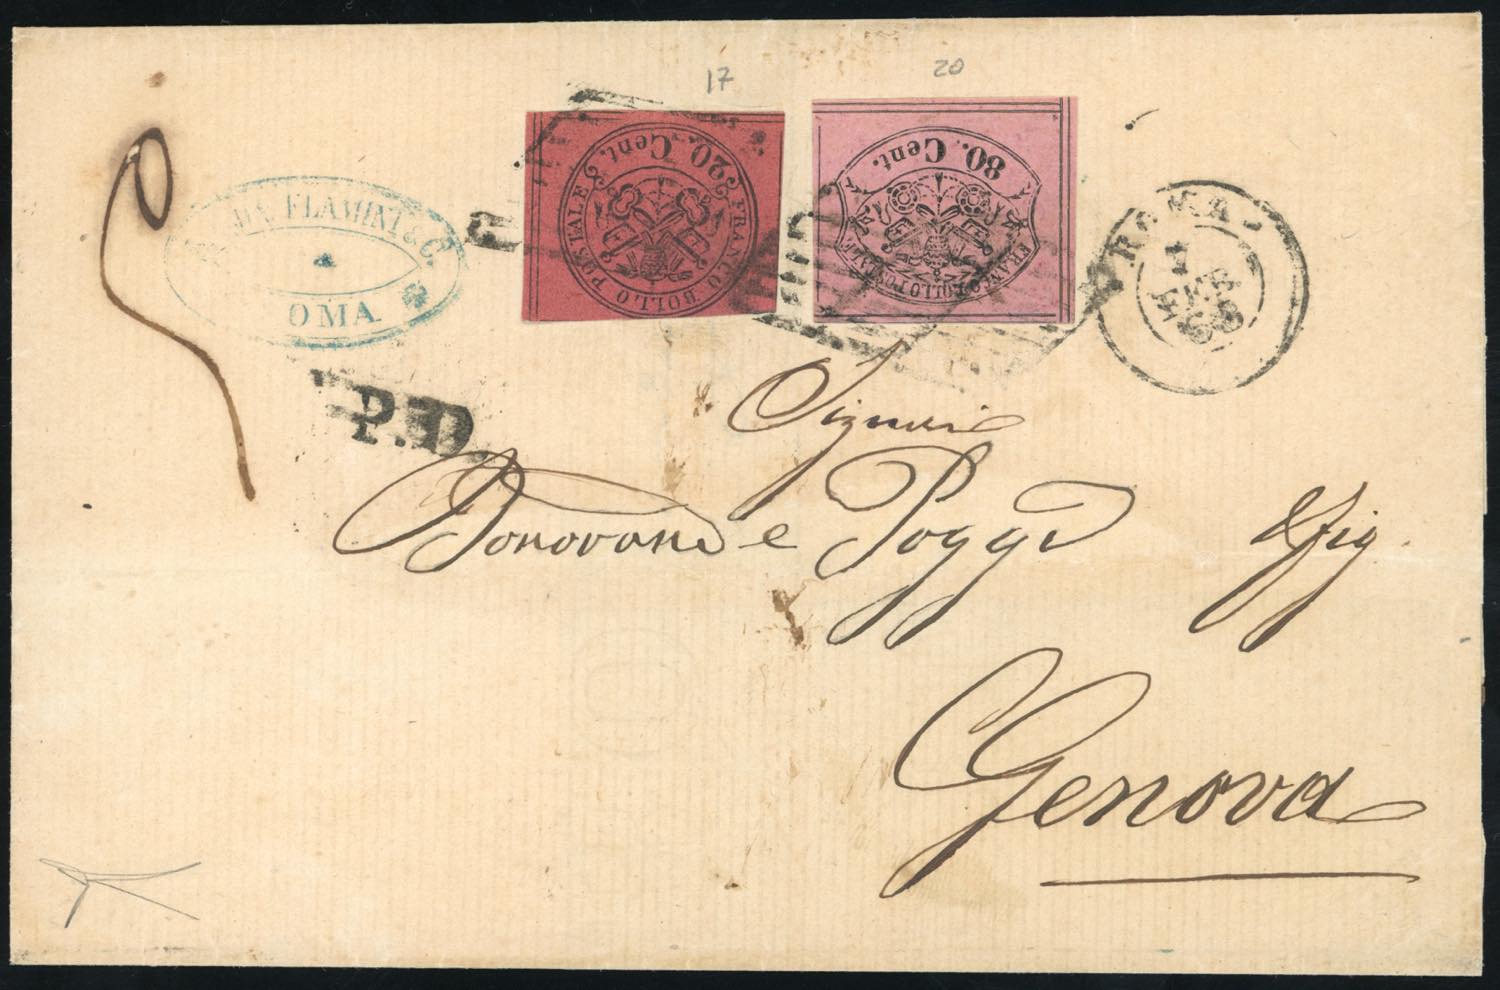 17
20
20 Cent.
FRANCO BOLLO POSTALE
80. Cent.
FRANCO BOLLO POSTALE
FLAMINI & C.
OMA
ROMA
1
FEB
68
P.D.
Signori
Donovane e Poggi
Genova